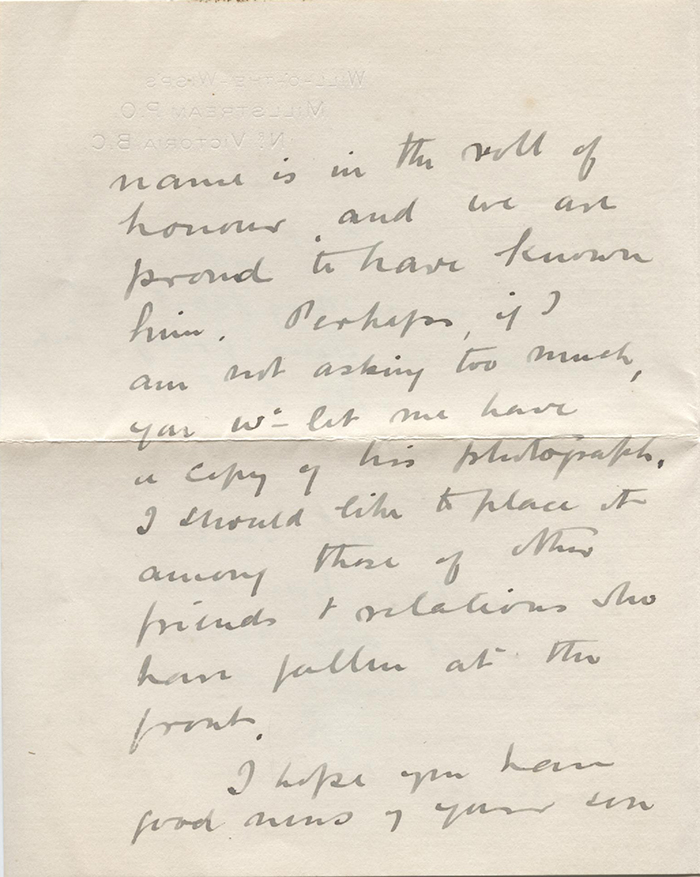 WILL-O'-THE-WISPS
MILLSTREAM P.O.
Nr VICTORIA B.C.
name is in the roll of
honour, and we are
proud to have known
him. Perhaps, if I
am not asking too much,
you wd let me have
a copy of his photograph.
I should like to place it
among those of other
friends & relations who
have fallen at the
front.
I hope you have
good news of your son